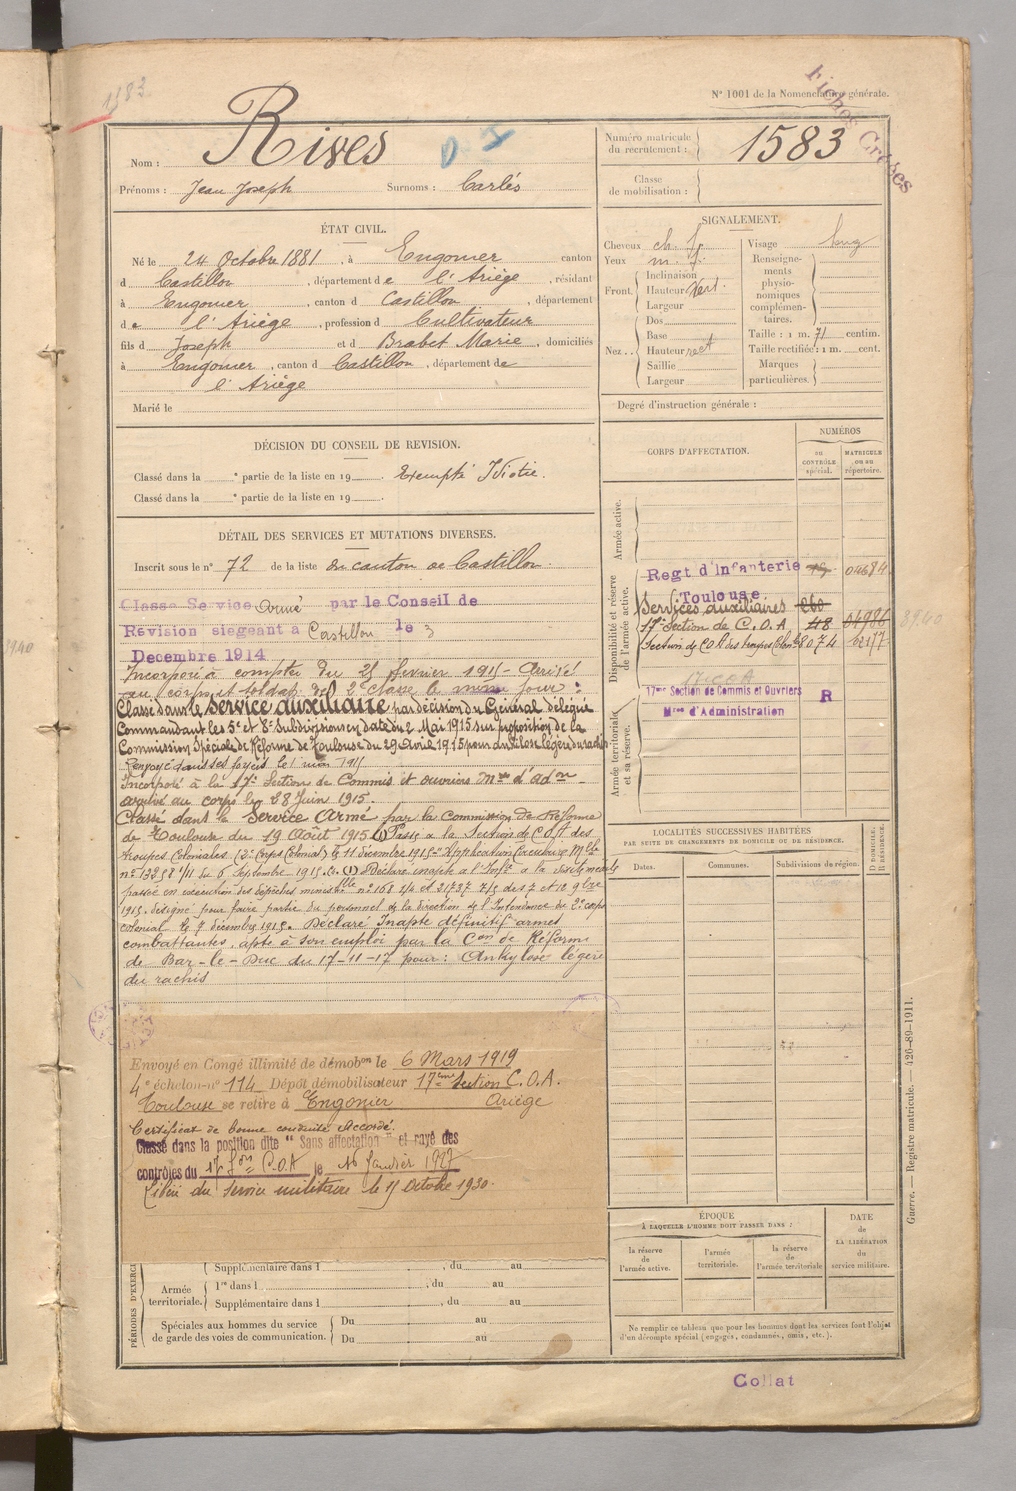 1583
N° 1001 de la Nomenclature générale.
Fiches Creses
Nom : Rives
O. I
Prénoms : Jean Joseph Surnoms : Carlés
Numéro matricule du recrutement : 1583
Classe de mobilisation :
ÉTAT CIVIL.
Né le 24 Octobre 1881, à Engomer canton
d Castillon, département de l'Ariège, résidant
à Engomer, canton d Castillon, département
de l'Ariège, profession d Cultivateur
fils d Joseph et d Brabet Marie, domiciliés
à Engomer, canton d Castillon, département de
l'Ariège
Marié le
SIGNALEMENT.
Cheveux ch.
Yeux m.
Front. Inclinaison
Hauteur Vert.
Largeur
Nez... Dos
Base
Hauteur rect
Saillie
Largeur
Visage long
Renseignements physionomiques complémentaires.
Taille : 1 m. 71 centim.
Taille rectifiée : 1 m. cent.
Marques particulières.
Degré d'instruction générale :
DÉCISION DU CONSEIL DE REVISION.
Classé dans la e partie de la liste en 19 . Exempté Idiotie.
Classé dans la e partie de la liste en 19 .
DÉTAIL DES SERVICES ET MUTATIONS DIVERSES.
Inscrit sous le n° 72 de la liste du canton de Castillon.
Classe Service Armé par le Conseil de
Révision siegeant a Castillon le 3
Decembre 1914
Incorporé à compter du 25 février 1915 – Arrivé
au corps et soldat de 2e classe le même jour :
Classé dans le service auxiliaire par décision du Général délégué
Commandant les 5e et 8e Subdivisions en date du 2 Mai 1915 sur proposition de la
Commission Spéciale de Réforme de Toulouse du 29 Avril 1915 pour ankilose légère du rachis
Renvoyé dans ses foyers le 1 mai 1915
Incorporé à la 17e Section de Commis et ouvriers Mres d'adon
arrivé au corps le 28 Juin 1915.
Classé dans le Service Armé par la Commission de Réforme
de Toulouse du 19 Août 1915 (1) Passé a la Section de C.O.A des
troupes Coloniales (2e Corps Colonial) le 11 décembre 1915 Application Circulaire Mlle
n° 13258 1/11 du 6 Septembre 1915. (1) Déclaré inapte a l'Infie a la
passée en exécution des dépêches ministlle n° 168 1/4 et 21737 7/5 des 7 et 12 9bre
1915. désigné pour faire partie du personnel de la direction de l'Intendance du 2e corps
colonial le 7 décembre 1915. Déclaré Inapte définitif armes
combattantes, apte à son emploi par la Con de Réforme
de Bar-le-Duc du 17-11-17 pour : Ankylose légère
du rachis
Envoyé en Congé illimité de démobon le 6 Mars 1919
4e échelon-n° 114 Dépôt démobilisateur 17ème Section C.O.A.
Toulouse se retire à Engomer Ariège
Certificat de bonne conduite Accordé.
Classé dans la position dite " Sans affectation " et rayé des
contrôles du 17e Son C.O.A le 16 Janvier 1927
Libéré du service militaire le 15 Octobre 1930.
CORPS D'AFFECTATION.
NUMÉROS
au CONTRÔLE spécial.
MATRICULE ou au répertoire.
Armée active.
Disponibilité et réserve de l'armée active.
Regt d'Infanterie 04684
Toulouse.
Services auxiliaires 260
17e Section de C.O.A 48 04986 8940
Section de C.O.A des troupes Colonles 8074 62177
17e C.O.A
17me Section de Commis et Ouvriers R
Mres d'Administration
Armée territoriale et sa réserve.
LOCALITÉS SUCCESSIVES HABITÉES
PAR SUITE DE CHANGEMENTS DE DOMICILE OU DE RÉSIDENCE.
Dates. Communes. Subdivisions de région.
D DOMICILE. R RÉSIDENCE.
PÉRIODES D'EXERCI
Supplémentaire dans l , du au
Armée territoriale. 1re dans l , du au
Supplémentaire dans l , du au
Spéciales aux hommes du service de garde des voies de communication. Du au
Du au
ÉPOQUE
À LAQUELLE L'HOMME DOIT PASSER DANS :
la réserve de l'armée active.
l'armée territoriale.
la réserve de l'armée territoriale
DATE de LA LIBÉRATION du service militaire.
Ne remplir ce tableau que pour les hommes dont les services font l'objet
d'un décompte spécial (engagés, condamnés, omis, etc.).
Guerre. — Registre matricule. 426-89-1911.
Collat
3940